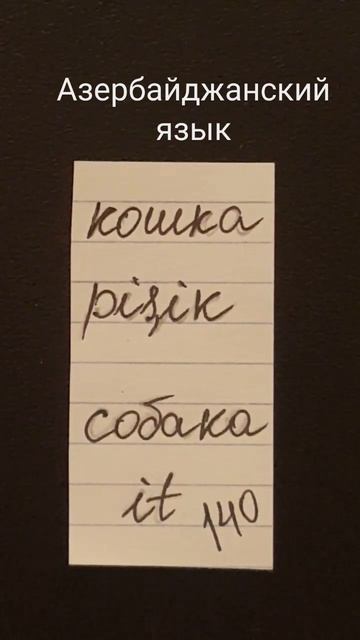 Азербайджанский
язык
кошка
pişik
собака
it 140